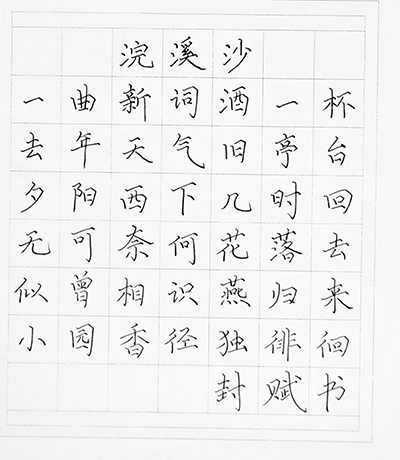 浣溪沙
一曲新词酒一杯
去年天气旧亭台
夕阳西下几时回
无可奈何花落去
似曾相识燕归来
小园香径独徘徊
封赋书